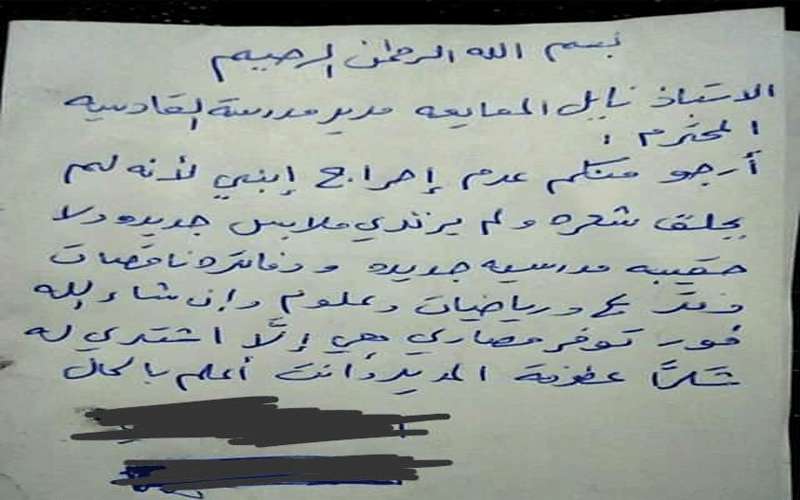 بسم الله الرحمن الرحيم
الاستاذ نايل المعايعه مدير مدرسة القادسيه
المحترم :
أرجو منكم عدم إحراج إبني لأنه لم
يحلق شعره ولم يرتدي ملابس جديده ولا
حقيبه مدرسيه جديده ودفاتره ناقصات
دفتر ع و رياضيات وعلوم وإن شاء الله
فور توفر مصاري هي إلَّا اشتري له
شكراً عطوفة المدير وأنت أعلم بالحال